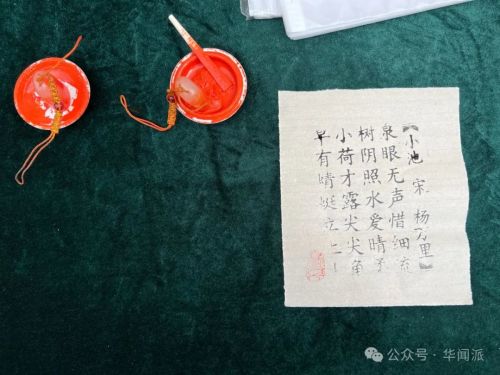 《小池 宋 杨万里》
泉眼无声惜细流
树阴照水爱晴
小荷才露尖尖角
早有蜻蜓立上
公众号·华闻派